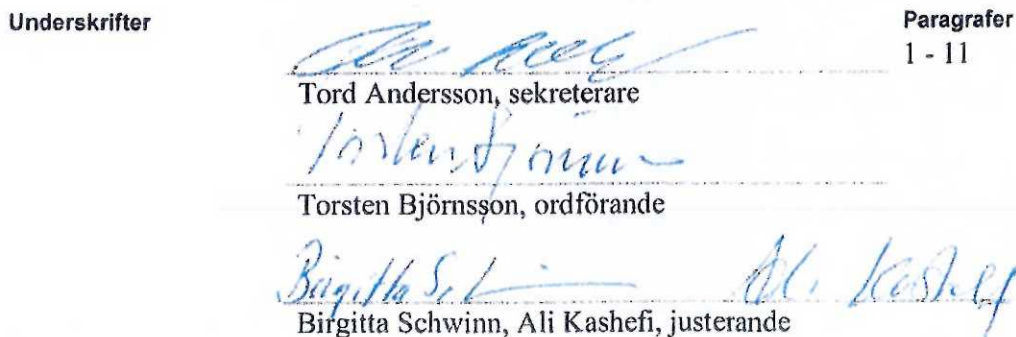 Underskrifter
Paragrafer
1 - 11
Tord Andersson, sekreterare
Torsten Björnsson
Torsten Björnsson, ordförande
Birgitta Ali Kashefi
Birgitta Schwinn, Ali Kashefi, justerande